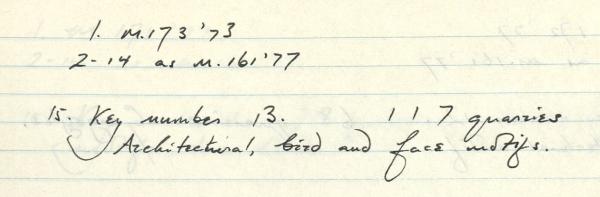 1. M.173 '73
2-14 as M.161 '77
15. Key number 13. 117 quarries
Architectural, bird and face motifs.